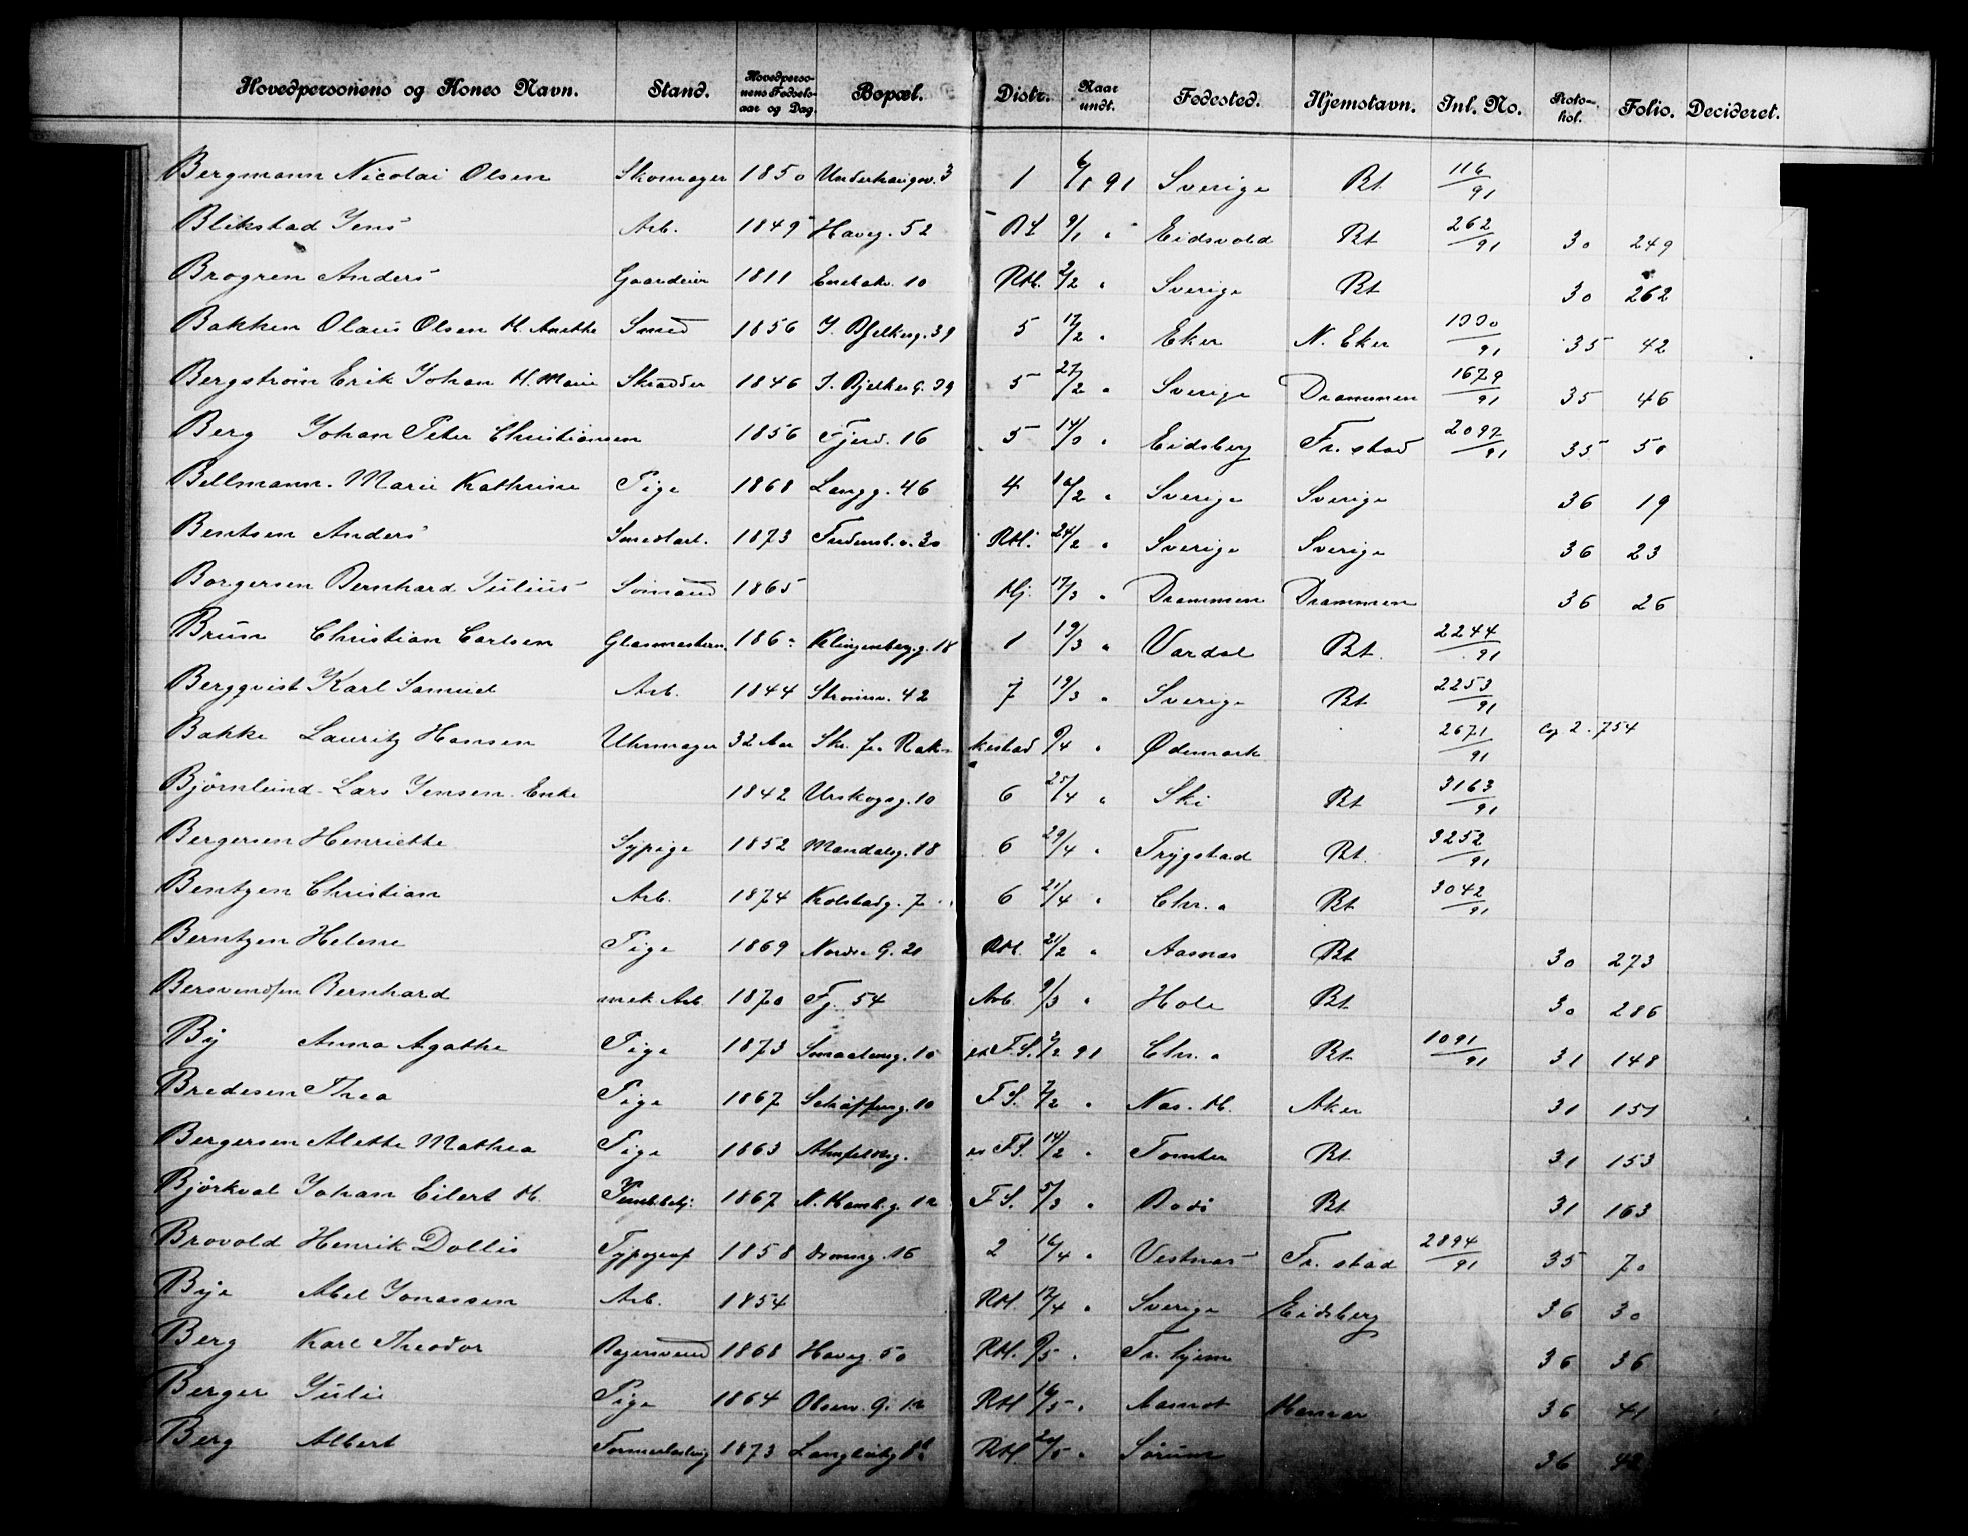 Hovedpersonens og Kones Navn. Stand. Hovedpersonens Fødselsaar og Dag. Bopæl. Distr. Naar undt. Fødested. Hjemstavn. Inl. No. Protokol. Folio. Decideret.
Bergmann Nicolai Olsen Skomager 1850 Underhaugsv. 3 1 6/1 91 Sverige Bt 116/91
Blikstad Jens Arb. 1849 Haveg. 52 9/1 " Eidsvold Bt 262/91 30 249
Brogren Anders Gaardeier 1811 10 RM. 2/2 " Sverige Bt 30 262
Bakken Olaus Olsen H. Anethe Smed 1856 39 5 17/2 " Eker N. Eker 35 42
Bergstrøm Erik Johan H. Marie Skrædder 1846 39 5 27/2 " Sverige Drammen 1679/91 35 46
Berg Johan Peter Christiansen 1856 Fjerd. 16 5 " Eidsberg Fr. stad 2097/91 35 50
Bellmann. Marie Kathrine Pige 1868 Langg. 46 4 " Sverige Sverige 36 19
Bentsen Anders Smedarb. 1873 RM. 24/2 " Sverige Sverige 36 23
Borgersen Bernhard Julius Sømand 1865 17/3 " Drammen Drammen 36 26
Brun Christian Carlsen Glasmestersv. Klingenbergg. 18 1 19/3 " Vardal Bt. 2244/91
Bergqvist Karl Samuel Arb. 1844 Strømsv. 42 7 19/3 " Sverige Bt 2253/91
Bakke Lauritz Hansen Uhrmager 32 Aar Skr. fra Rakkestad 9/4 " Ødemark 2671/91 Cop 2. 754
Bjørnlund Lars Jensen Enke 1842 Urskogsg. 10 6 25/4 " Ski Bt 3163/91
Bergersen Henriette Sypige 1852 Mandalsg. 18 6 29/4 " Trygstad Bt. 3252/91
Bentzen Christian Arb. 1874 Kolstadg. 7 6 21/4 " Chr.a Bt 3042/91
Berntzen Helene Pige 1869 Nordre G. 21 RM. 21/2 " Aasnes Bt 30 273
Bersvendsen Bernhard mek Arb. 1870 Fj. 54 Arb. 9/3 " Hole Bt 30 286
By Anna Agathe Pige 1873 Smaaleng. 10 F.S. 2/2 91 Chr.a Bt. 1091/91 31 148
Bredesen Thea Pige 1867 Schøffeng. 10 F.S. 7/2 " Nes. H. Aker 31 151
Bergersen Alette Mathea Pige 1863 F.S. 14/2 " Tomter Bt 31 153
Bjørkval Johan Eilert H. 1867 F.S. 5/3 " Bodø Bt 31 163
Brovold Henrik Dollis Typograf 1858 16 2 16/4 " Vestnes Fr. stad 2894/91 35 70
Bye Abel Jonassen Arb. 1854 RM. 17/4 " Sverige Eidsberg 36 30
Berg Karl Theodor Bagersvend 1868 Haveg. 50 RM. 9/5 " Tr. hjem 36 36
Berger Julie Pige 1864 RM 16/5 " Aamot Hamar 36 41
Berg Albert 1873 RM " Sørum 36 42